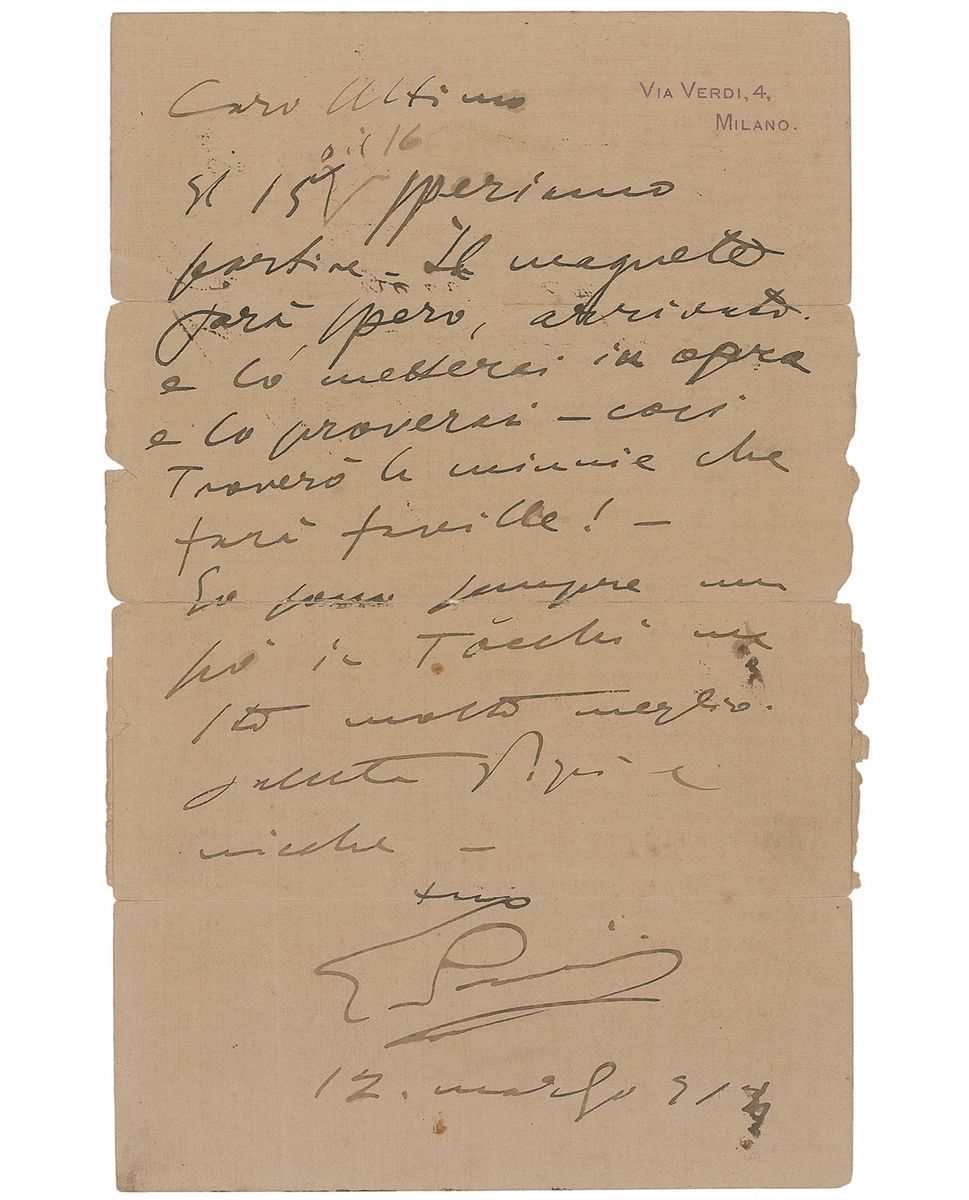 Caro Ultimo
VIA VERDI, 4,
MILANO.
o il 16
Il 15 speriamo
partire – Il magnete
sarà spero, arrivato.
e lo metterai in opra
e lo proverai – così
Troverò la minnie che
farà faville! –
Io sono sempre un
pò in Tocchi ma
stò molto meglio.
saluta e
tuo
12. marzo